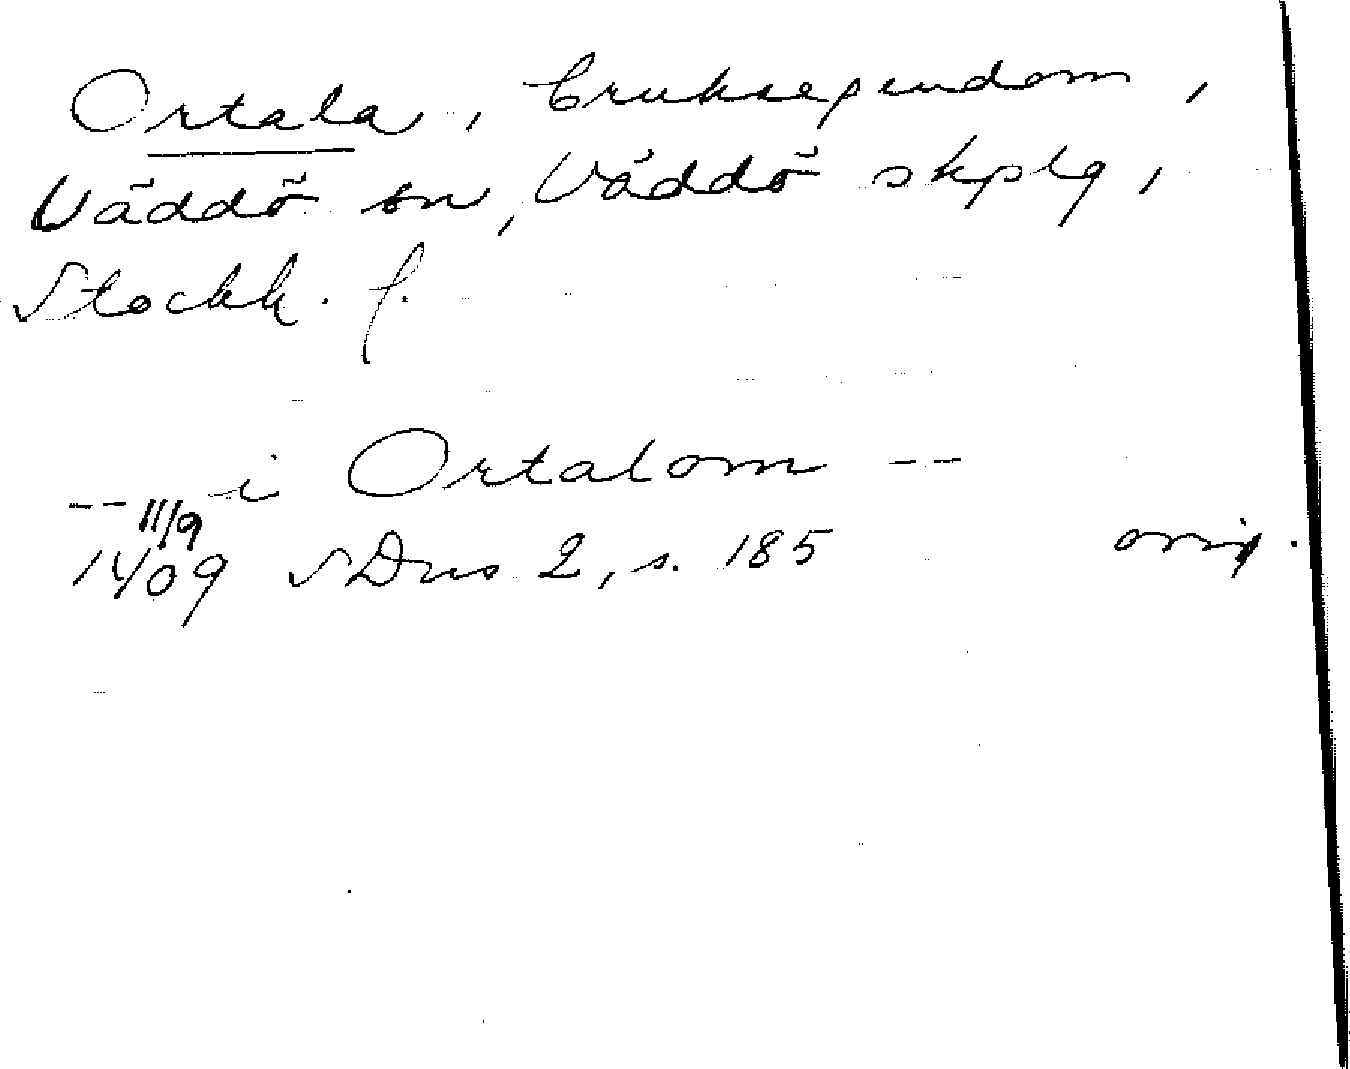 Ortala, bruksegendom,
Väddö sn, Väddö skplg,
Stockh. l.
-- i Ortalom --
11/9
1409 SDns 2, s. 185 orig.